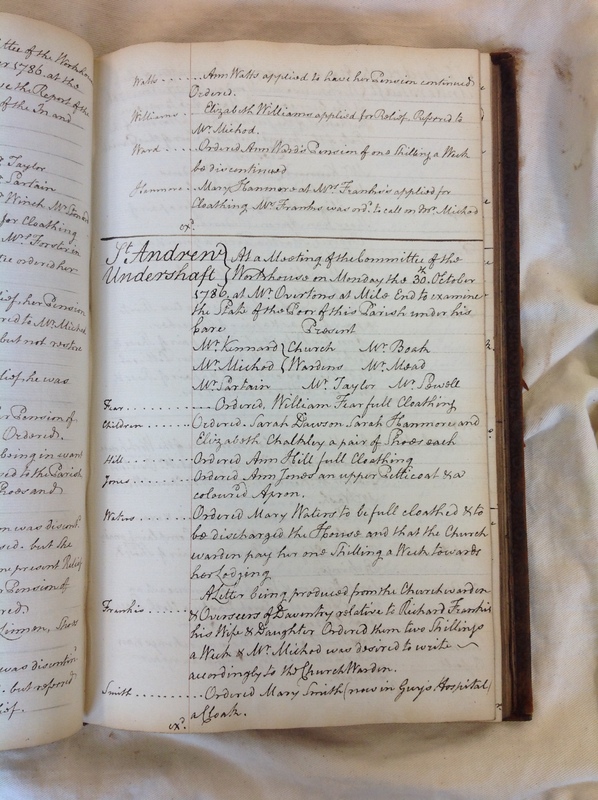 ttee of the Workh
r 1786. at the
e the Report of the
of the In and
Taylor
Sartain
Winch Mr
for Cloathing
Mr Forster
ordered her
lief. her Pension
red to Mr Michod
but not restore
lief he was
Pension of
Ordered.
being in want
ed to the Parish
Shoes and
n was discont
ed. but the
n present Relief
Pension of
red.
Linnen, Shoes
was discontin
but refered
ief.
Watts ...... Ann Watts applied to have her Pension continued
Ordered.
Williams ... Elizabeth Williams applied for Relief. Refered to
Mr Michod.
Ward ....... Ordered Ann Ward's Pension of one Shilling a Week
be discontinued
Hanmore .... Mary Hanmore at Mr Frankis's applied for
Cloathing Mr Frankis was ordd to call on Mr Michod
exd.
St Andrew } At a Meeting of the Committee of the
Undershaft } Workhouse on Monday the 30th October
1786. at Mr Overtons at Mile End to examine
the State of the Poor of this Parish under his
Care Present
Mr Kennard } Church Mr Boak
Mr Michod } Wardens Mr Mead
Mr Sartain Mr Taylor Mr Sewell
Fear ........... Ordered, William Fear full Cloathing
Children ....... Ordered. Sarah Dawson Sarah Hanmore and
Elizabeth Chalkley a pair of Shoes each
Hill ........... Ordered Ann Hill full Cloathing
Jones .......... Ordered Ann Jones an upper Petticoat & a
coloured Apron.
Waters ......... Ordered Mary Waters to be full cloathed & to
be discharged the House and that the Church
warden pay her one Shilling a Week towards
her Lodging
A Letter being produced from the Churchwarden
Frankis ........ & Overseers of Daventry relative to Richard Frankis
his Wife & Daughter Ordered them two Shillings
a Week & Mr Michod was desired to write
accordingly to the Church Warden.
Smith .......... Ordered Mary Smith (now in Guy's Hospital)
a Cloak.
exd.